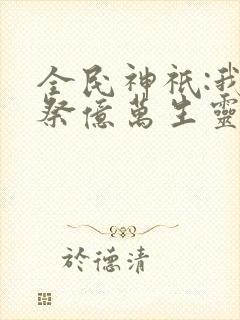 全民神祇:我
祭億萬生靈
於德清